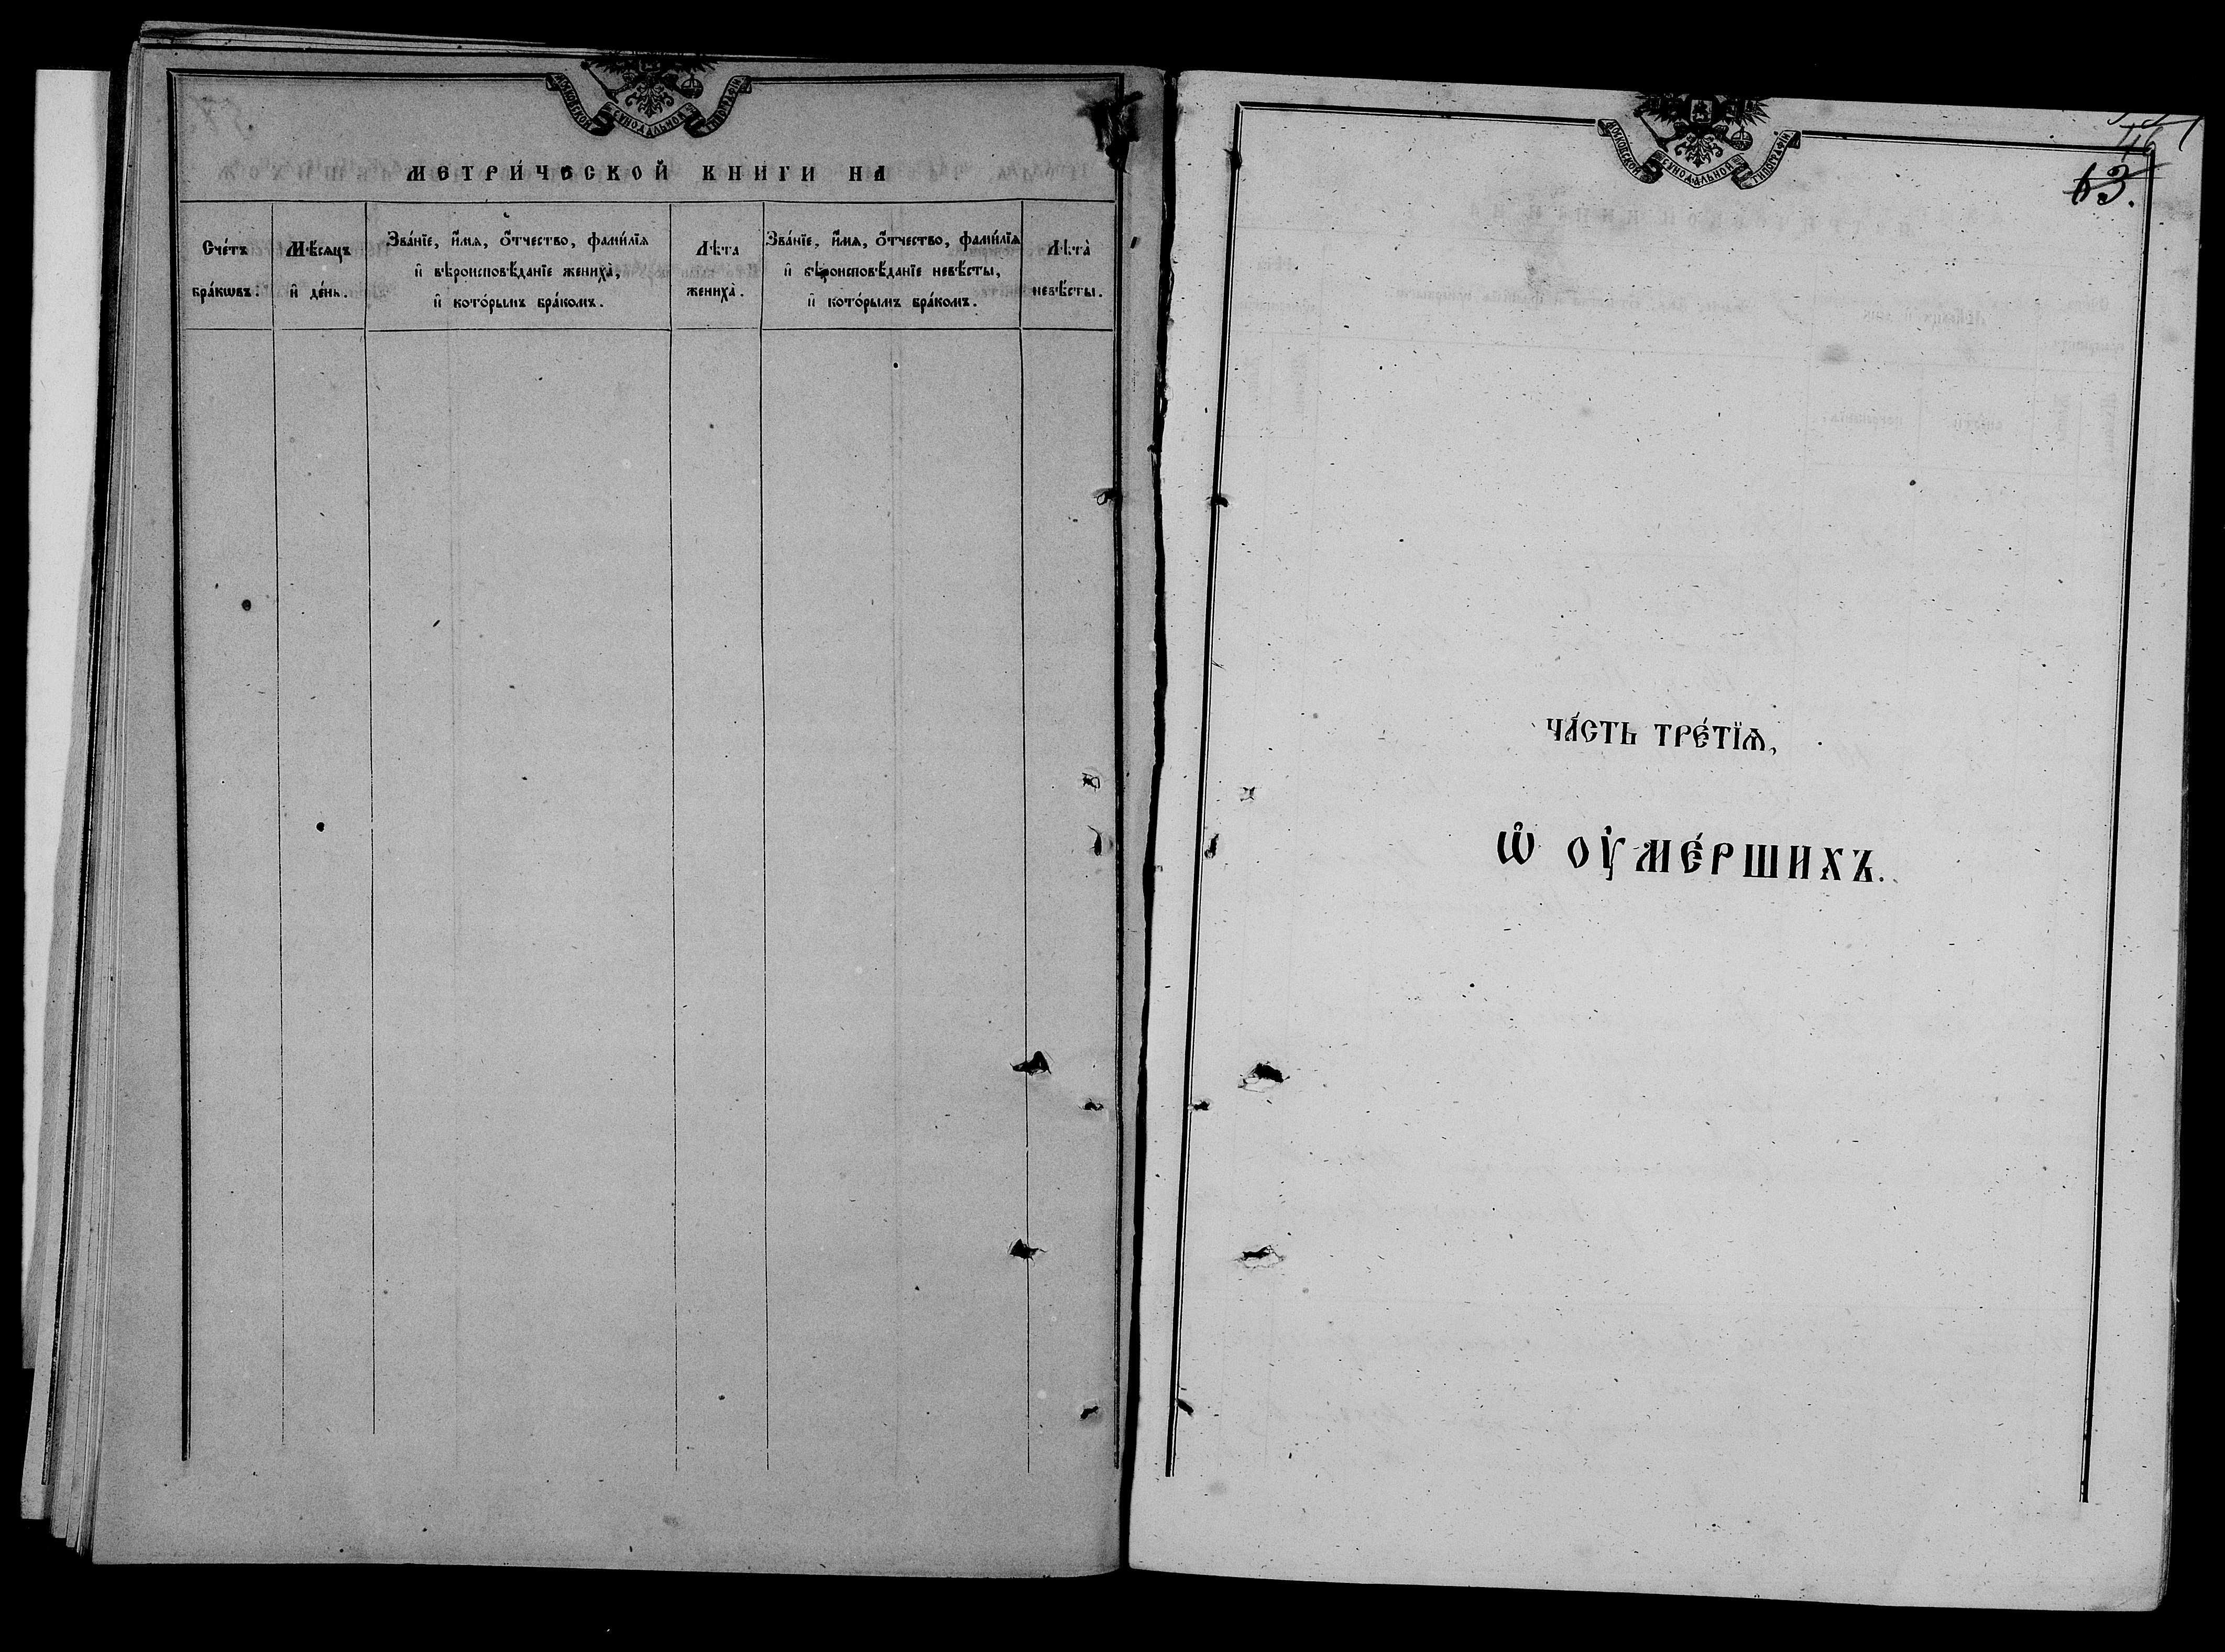 МОСКОВСКОЙ СѴНОДАЛЬНОЙ ТИПОГРАФІИ
МЕТРИ́ЧЕСКОЙ КНИГИ НА
Сче́тъ бра́кѡвъ.
Мѣ́сяцъ и҆ де́нь.
Зва́нїе, и҆́мѧ, ѻ҆́тчество, фами́лїѧ
и҆ вѣроисповѣ́данїе жениха̀,
и҆ кото́рымъ бра́комъ.
Лѣта жениха̀.
Зва́нїе, и҆́мѧ, ѻ҆́тчество, фами́лїѧ
и҆ вѣроисповѣ́данїе невѣ́сты,
и҆ кото́рымъ бра́комъ.
Лѣта̀ невѣ́сты.
МОСКОВСКОЙ СѴНОДАЛЬНОЙ ТИПОГРАФІИ
46
63.
ЧА́СТЬ ТРЕ́ТЇѦ,
Ѡ҆ ОУ҆МЕ́РШИХЪ.